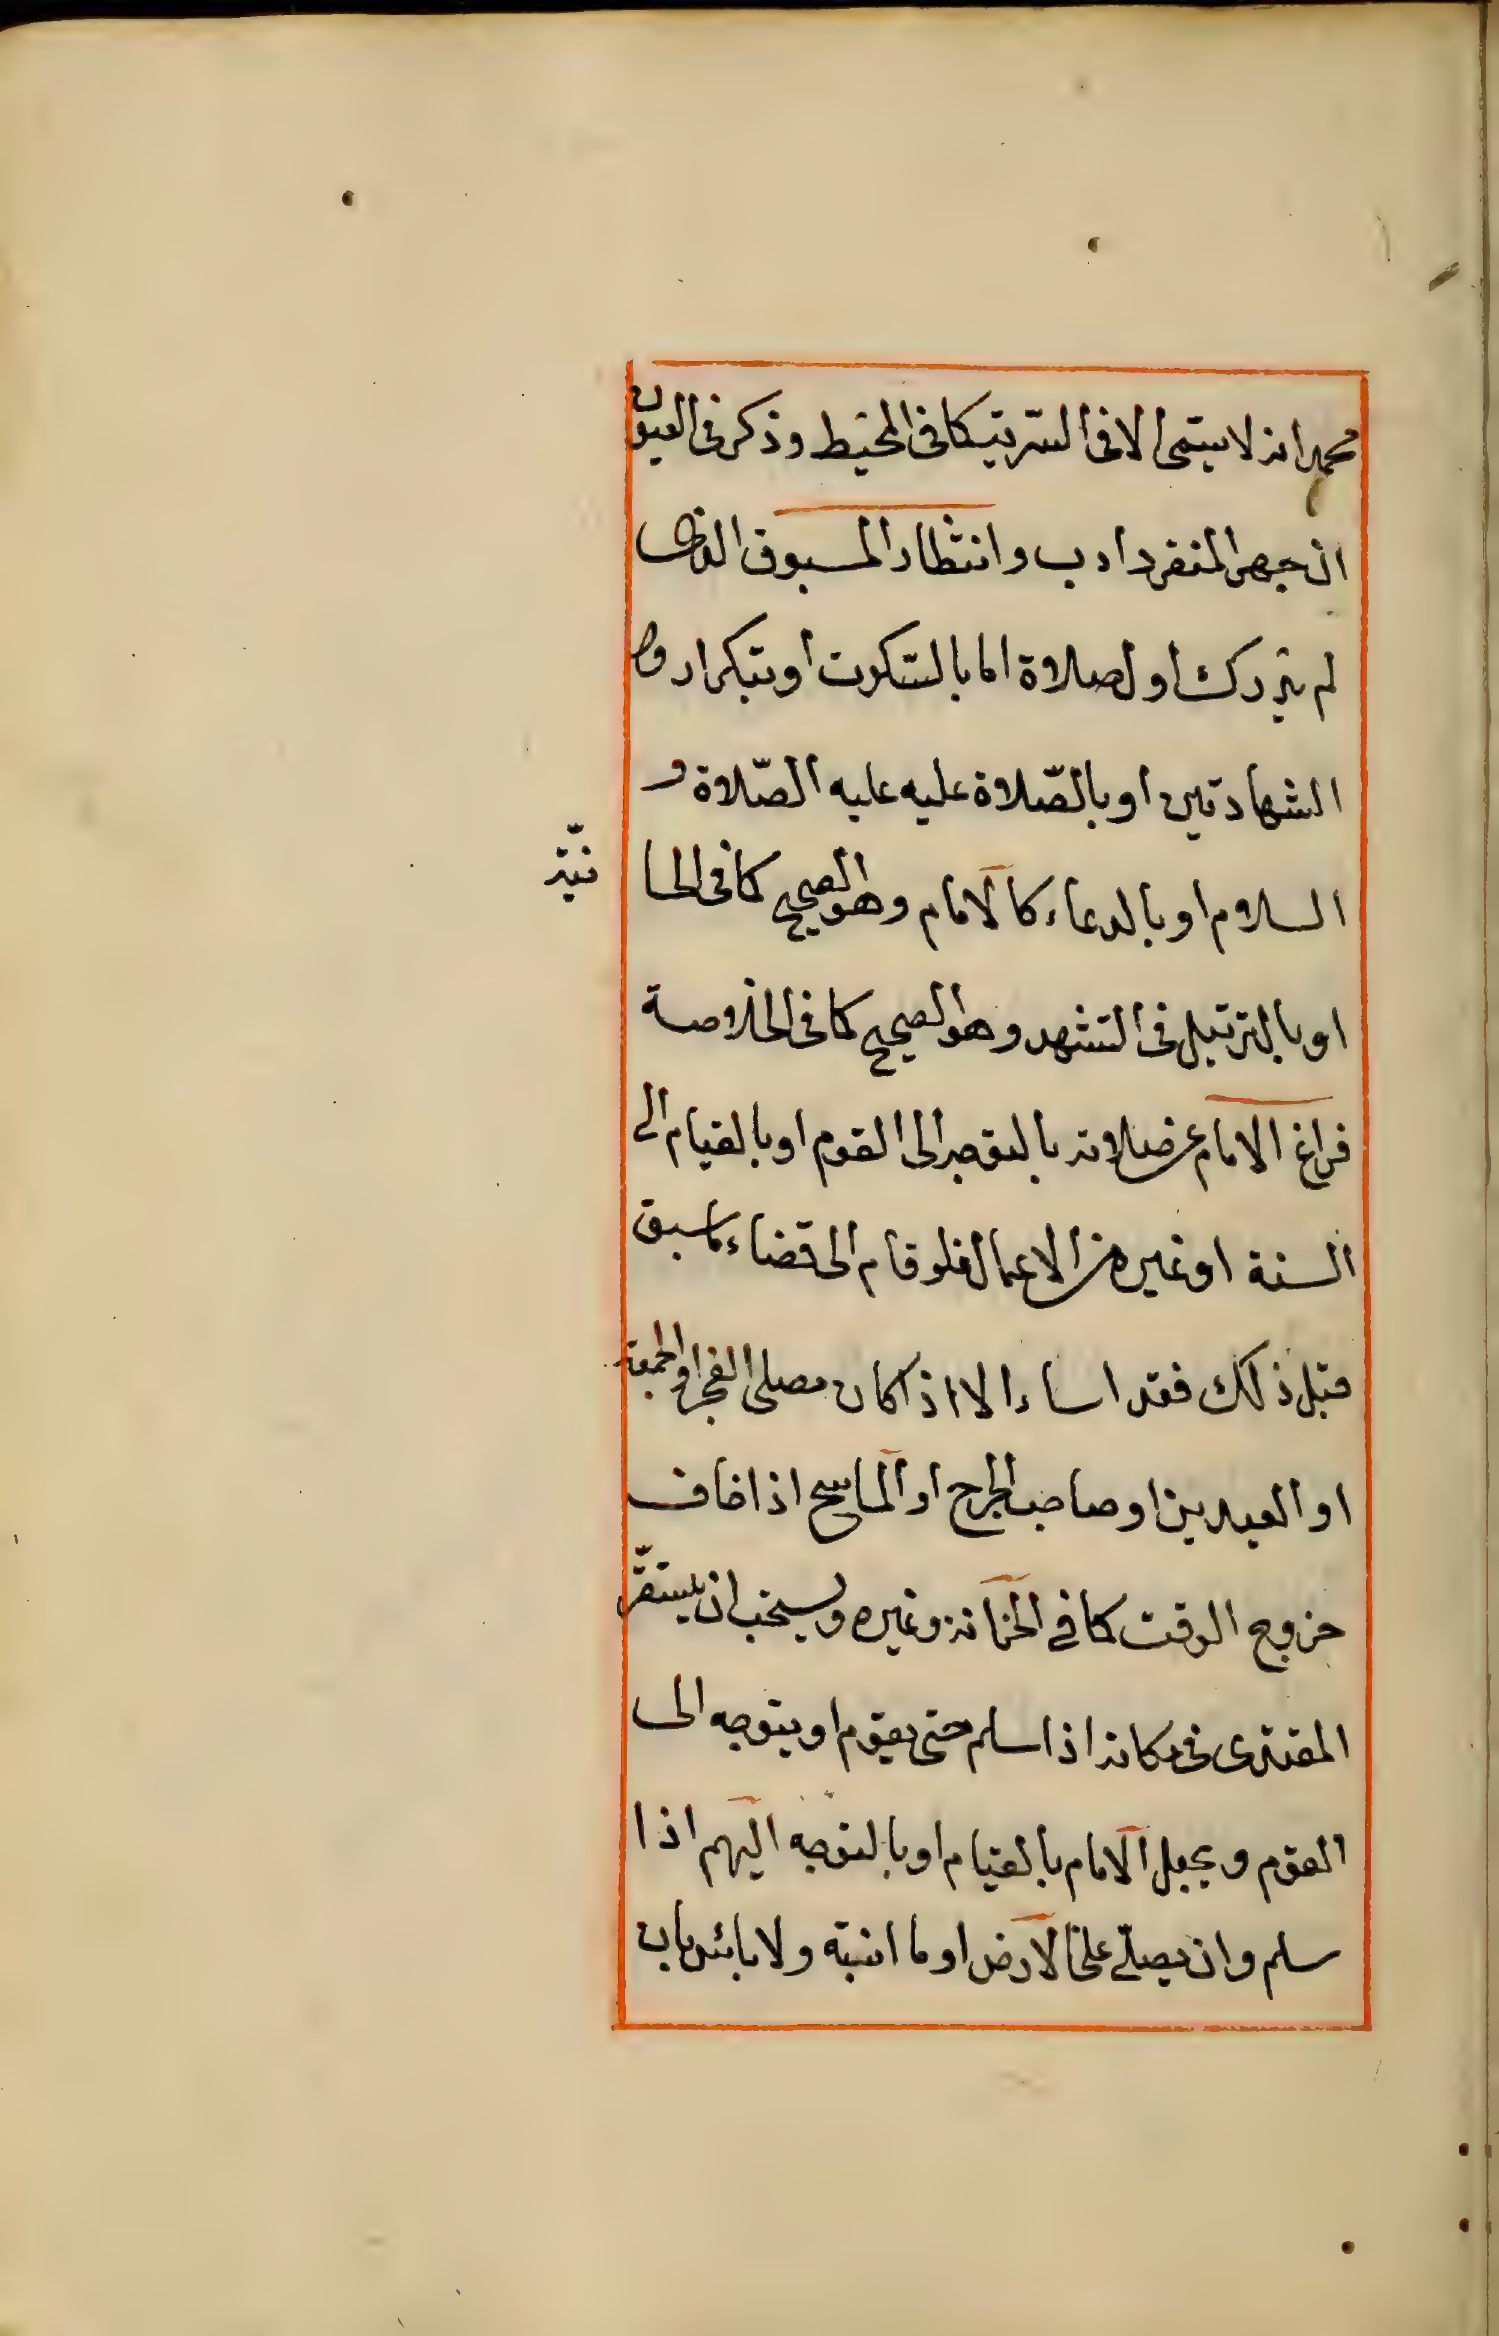 محمد انه لا يسمى الا فى السرية كما فى المحيط وذكر فى العيون
ان جهر المنفرد ادب وانتظار المسبوق الذى
لم يدرك اول صلاة اما بالسّكوت او بتكرار
الشهادتين او بالصّلاة عليه عليه الصّلاة و
السلام او بالدعاء كالامام وهو الصحيح كما فى الخا
نيّة
او بالترتيل فى التشهد وهو الصحيح كما فى الخلاصة
فراغ الامام عن صلاته بالتوجه الى القوم او بالقيام الى
السنة او غيره من الاعمال فلو قام الى قضاء ما سبق
قبل ذلك فقد اساء الا اذا كان مصلى الفجر او الجمعة
او العيدين او صاحب الجرح او الماسح اذا خاف
خروج الوقت كما فى الخزانة وغيره ويستحب ان يستقرّ
المقتدى فى مكانه اذا سلم حتى يقوم او يتوجه الى
القوم ويعجل الامام بالقيام او بالتوجه اليهم اذا
سلم وان يصلّى على الارض او ما انبته ولا بائس بان